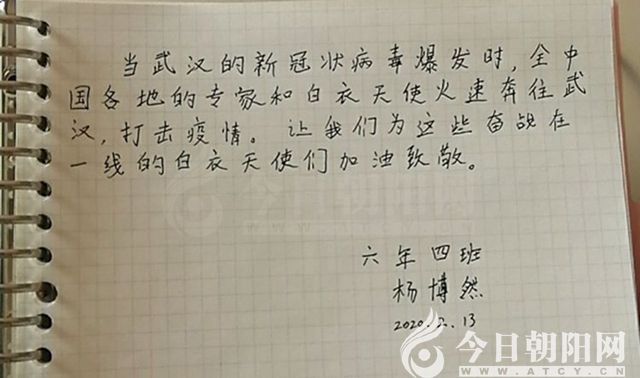 当武汉的新冠状病毒爆发时,全中
国各地的专家和白衣天使火速奔往武
汉,打击疫情。让我们为这些奋战在
一线的白衣天使们加油致敬。
六年四班
杨博然
2020.2.13
今日朝阳网
WWW.ATCY.CN